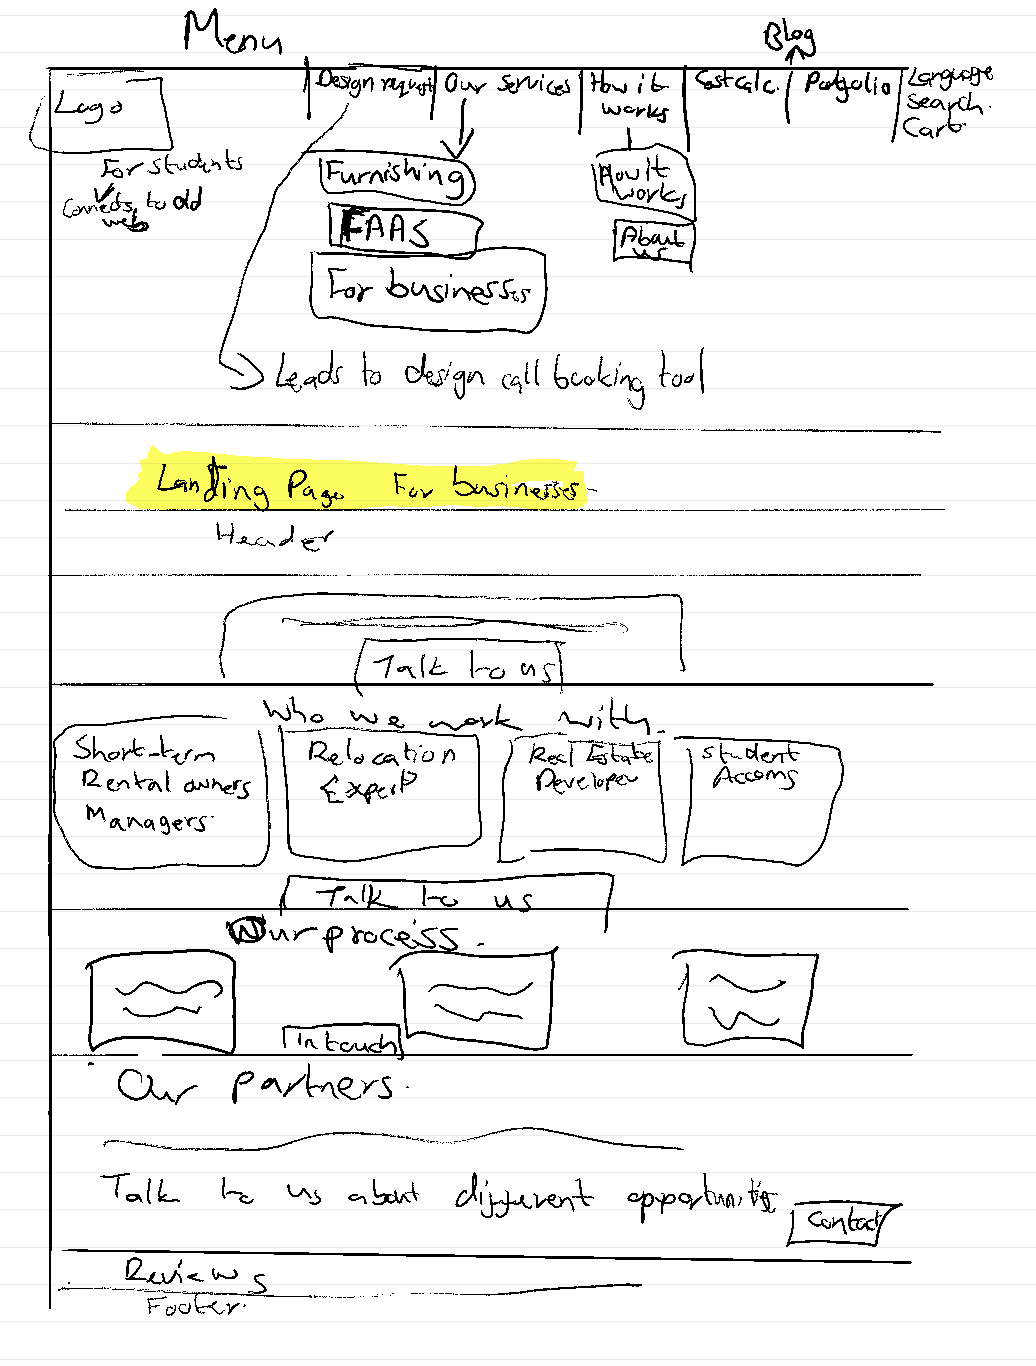 Menu
Blog
Logo
Design request
Our services
How it works
Cost calc.
Portfolio
Language
Search.
Cart.
For students
Connects to old
web
Furnishing
FAAS
For businesses
How it
works
About
us
Leads to design call booking tool
Landing Page For businesses
Header
Talk to us
Who we work with.
Short-term
Rental owners
Managers.
Relocation
Expert
Real Estate
Developer
Student
Accoms
Talk to us
Our process.
In touch
Our partners.
Talk to us about different opportunities
Contact
Reviews
Footer.